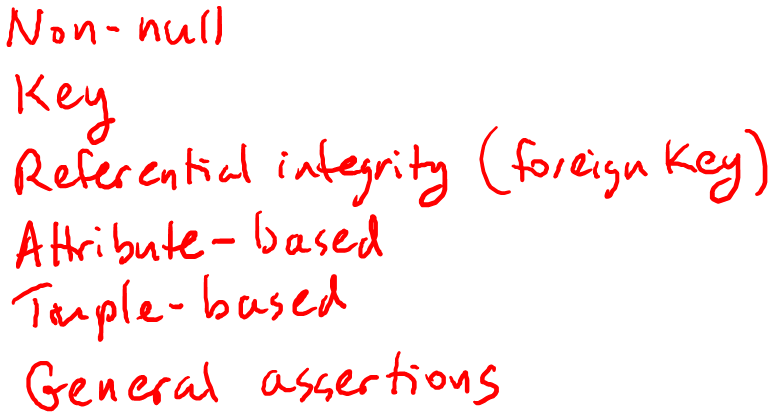 Non-null
Key
Referential integrity (foreign key)
Attribute-based
Tuple-based
General assertions